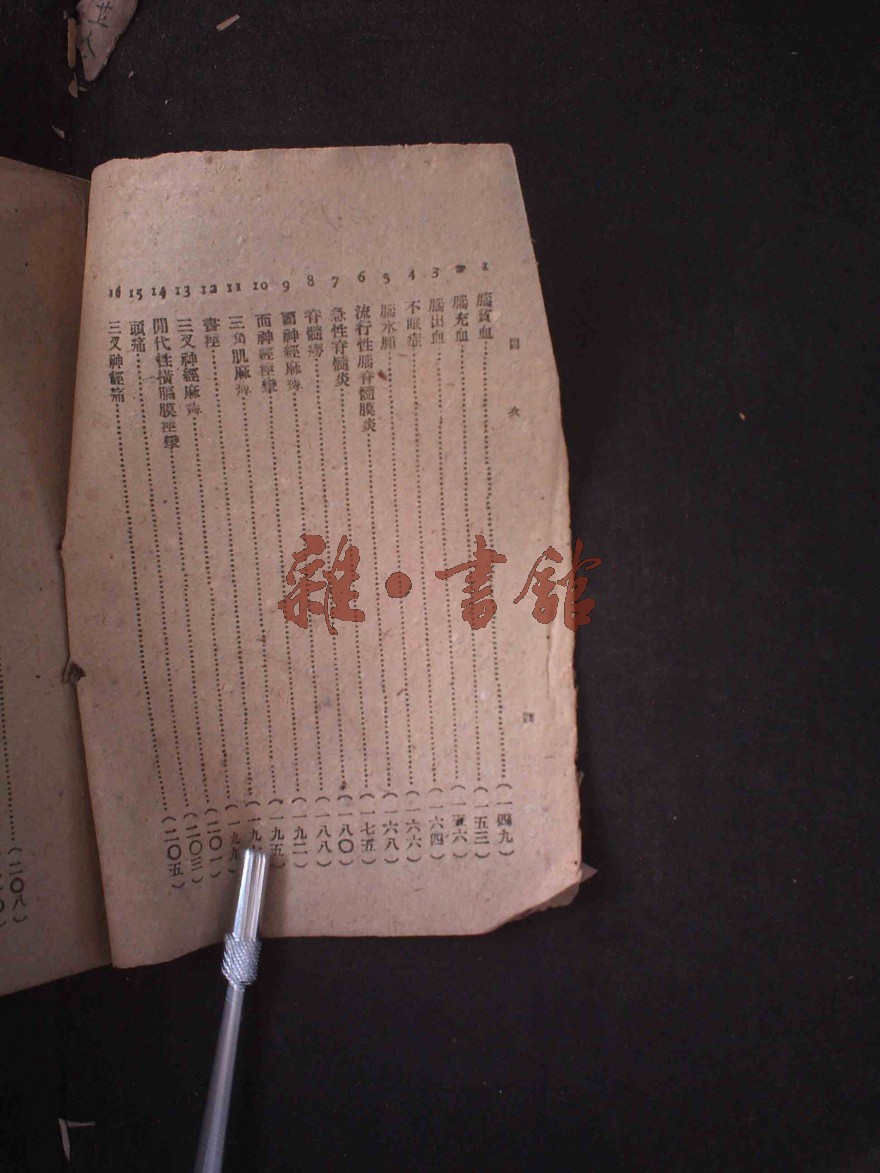 目次
1 腦貧血……(一四九)
2 腦充血……(一五三)
3 腦出血……(一五六)
4 不眠症……(一六四)
5 腦水腫……(一六六)
6 流行性腦脊髓膜炎……(一六八)
7 急性脊髓炎……(一七五)
8 脊髓癆……(一八〇)
9 面神經麻痺……(一八八)
10 面神經痙攣……(一九二)
11 三角肌麻痺……(一九五)
12 書痙……(一九
13 三叉神經麻痺……(一九九)
14 間代性橫膈膜痙攣……(二〇一)
15 頭痛……(二〇三)
16 三叉神經痛……(二〇五)
……(二〇八)
雜·書館